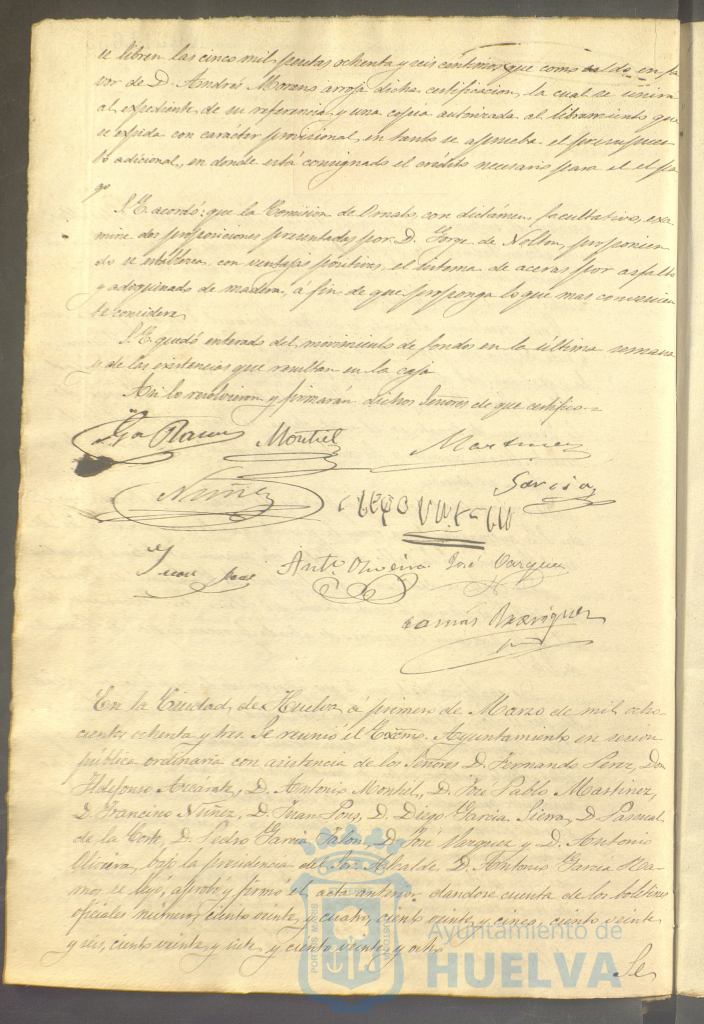 se libren las cinco mil pesetas ochenta y seis centimos que como saldo en fa-
vor de D. Andrés Moreno arroja dicha certificacion, la cual se unirá
al expediente de su referencia y una copia autorizada al libramiento que
se expida con carácter provisional, en tanto se aprueba el presupues-
to adicional, en donde está consignado el crédito necesario para el pa-
go
S. E. acordó: que la Comision de Ornato, con dictámen facultativo, exa-
mine dos proposiciones presentadas por D. Jorge de proponien-
do se establezca, con ventajas positivas, el sistema de aceras por asfalto
y adoquinado de madera, á fin de que proponga lo que mas convenien-
te considere
S. E. quedó enterado del movimiento de fondos en la última semana
y de las existencias que resultan en la caja
Asi lo resolvieron y firmarán dichos Señores de que certifico=
Ga Ramos Montiel Martinez
Nuñez Garcia
Juan Pons Antº Oliveira José Vazquez
Tomás Rodriguez
En la Ciudad de Huelva á primero de Marzo de mil ocho-
cientos ochenta y tres. Se reunió el Excmo. Ayuntamiento en sesion
pública ordinaria con asistencia de los Señores D. Fernando Perez, Don
Ildefonso Alcárate, D. Antonio Montiel, D. José Pablo Martinez,
D. Francisco Nuñez, D. Juan Pons, D. Diego Garcia Sierra, D. Pascual
de la Corte, D. Pedro Garcia Jalon, D. José Vazquez y D. Antonio
Oliveira, bajo la presidencia del Sor. Alcalde D. Antonio Garcia Ra-
mos, se leyó, aprobó y firmó el acta anterior dandose cuenta de los boletines
oficiales número, ciento veinte y cuatro, ciento veinte y cinco, ciento veinte
y seis, ciento veinte y siete y ciento veinte y ocho
Se
Ayuntamiento de
HUELVA